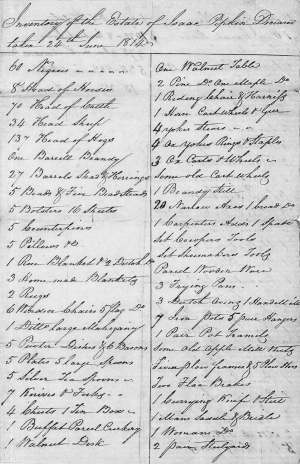 Inventory of the Estate of Isaac Pipkin Deceased
taken 24th June 1814
60 Negroes
8 Head of Horses
70 Head of Cattle
34 Head Sheep
137 Head of Hogs
One Barrell Brandy
27 Barrels Shad & Herrings
5 Beds & Five Bed Steads
5 Bolsters 10 Sheets
5 Counterpins
5 Pillows
1 Rose Blanket & 2 Dutch
3 Home made Blankets
2 Rugs
6 Windsor Chairs 5 flag Do
1 Large Mahogany
5 Pewter Dishes & 6 Basons
5 Plates 5 large Spoons
5 Silver Tea Spoons
7 Knives & Forks
4 Chests 1 Box
1 Buffet Parcel
1 Walnut Desk
One Walnut Table
2 Pine Do One Maple Do
1 Riding Chair & Harness
1 Horse Cart Wheels & Gear
4 yokes Steers
4 Ox yokes Rings & Staples
3 Ox Carts & Wheels
Some old Cart Wheels
1 Brandy Still
20 Narrow Axes 1 broad Do
1 Carpenters Adds 1 Spade
Set Coopers Tools
Set Shoemakers Tools
Parcel Wooden Ware
3 Frying Pans
3 Dutch Ovens 1
7 Iron Pots 5 pair Hangers
1 Pair Pot
Some Old Apple Mill Nuts
Two Flax Brakes
1 Currying Knife & Steel
1 Mans Saddle & Bridle
1 Womans Do
2 pair Stilyards